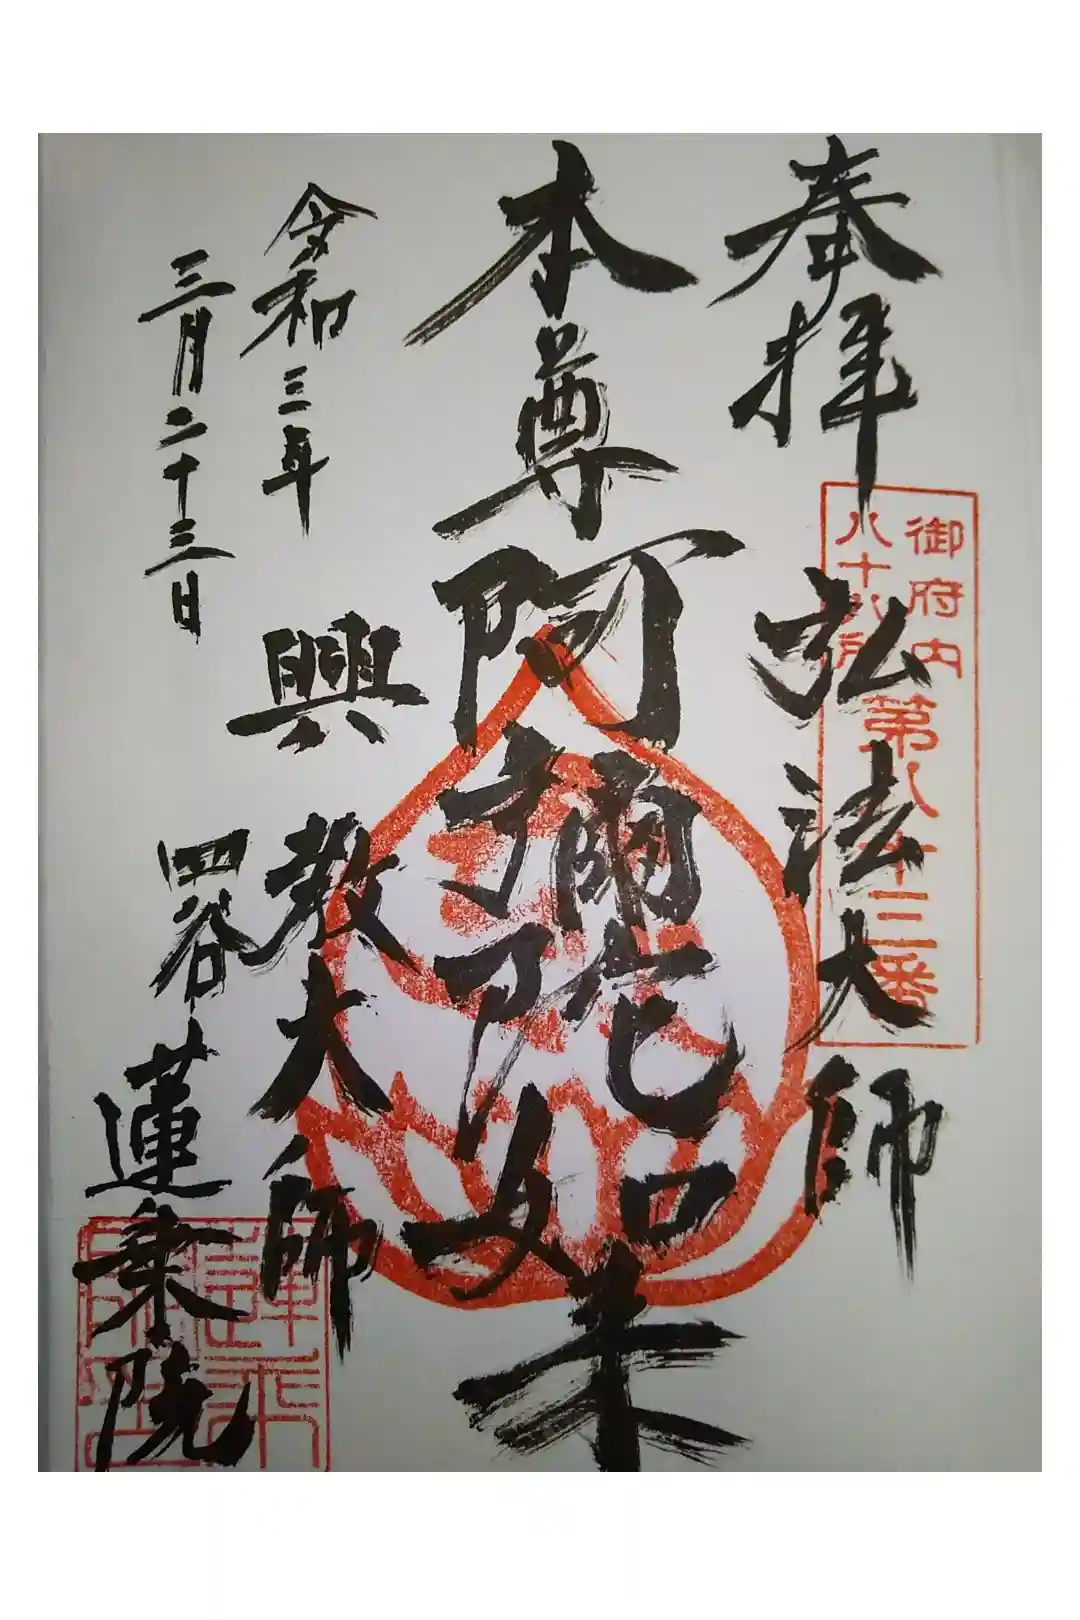 奉拝
弘法大師
御府内
八十八ヶ所
第八十三番
本尊
阿彌陀如来
興教大師
令和三年
三月二十三日
四谷
蓮乗院